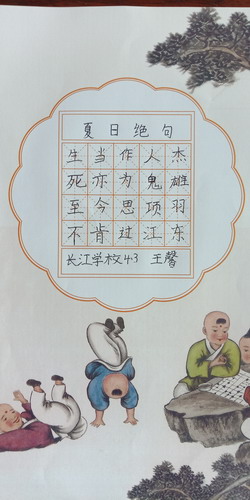 夏日绝句
生当作人杰
死亦为鬼雄
至今思项羽
不肯过江东
长江学校4.3 王馨